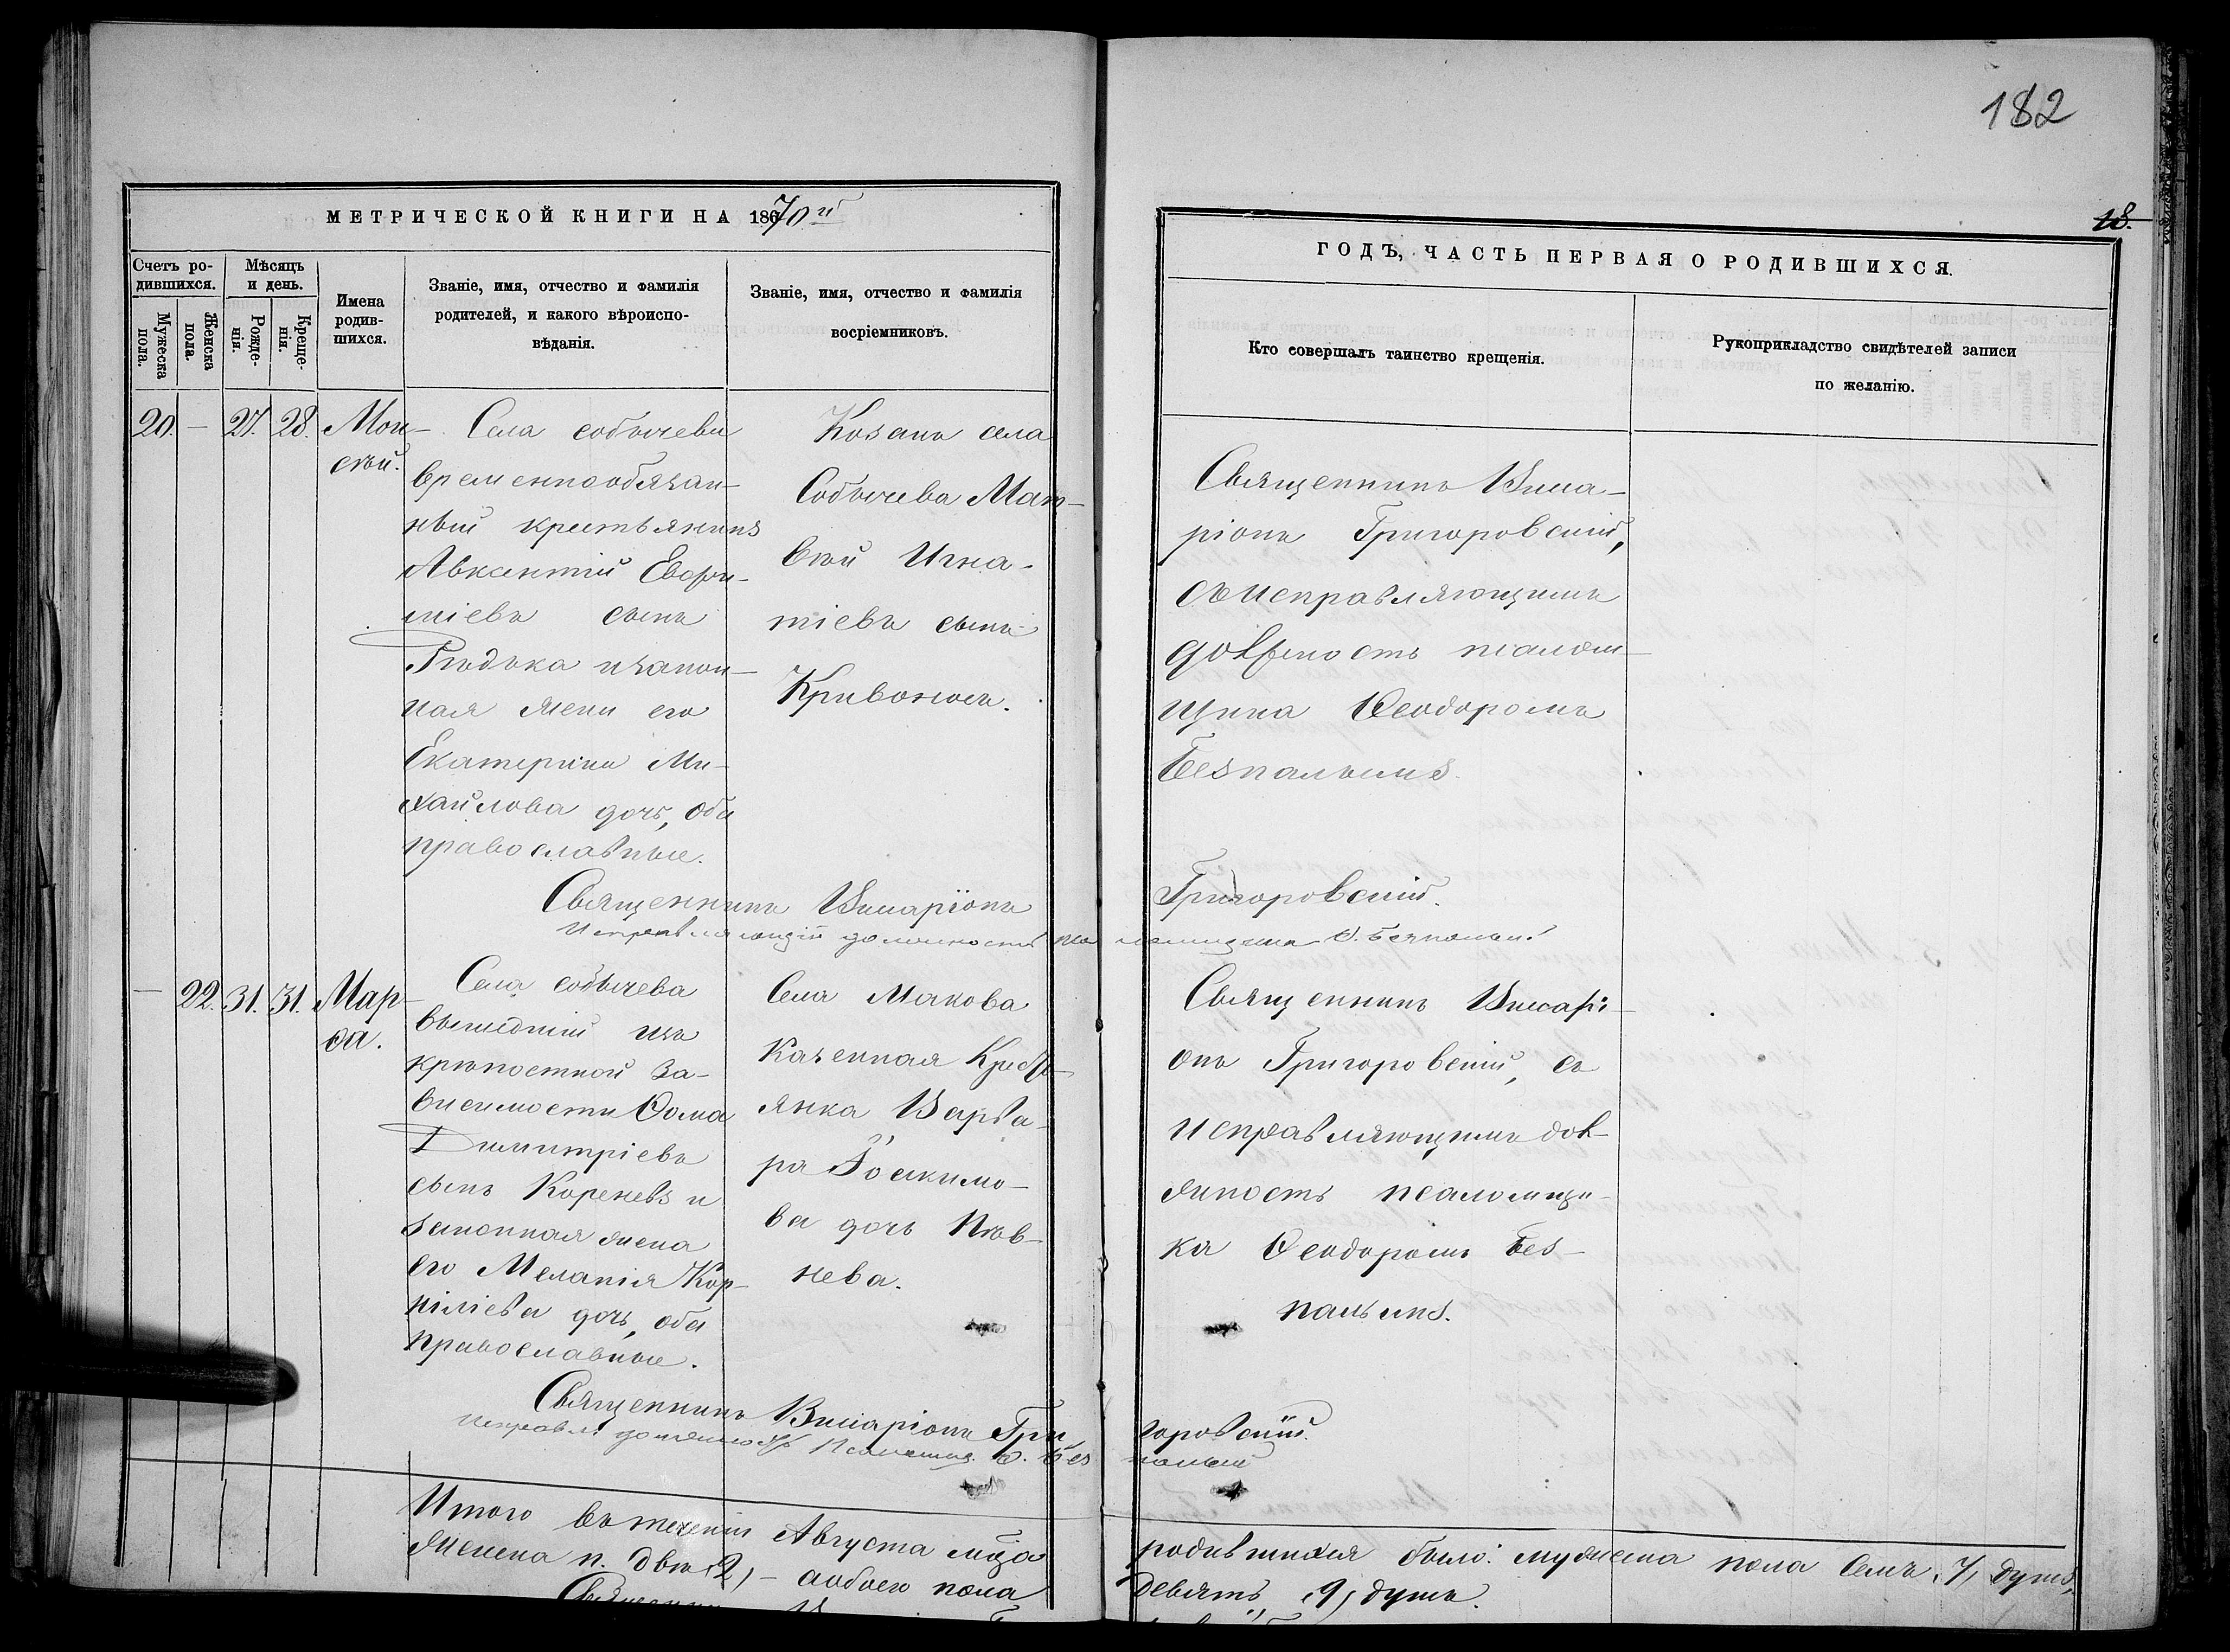 182
МЕТРИЧЕСКОЙ КНИГИ НА 1870й
18.
ГОДЪ, ЧАСТЬ ПЕРВАЯ О РОДИВШИХСЯ.
Счетъ ро-
дившихся.
Мужеска
пола.
Женска
пола.
Мѣсяцъ
и день.
Рожде-
нія.
Креще-
нія.
Имена
родив-
шихся.
Званіе, имя, отчество и фамилія
родителей, и какого вѣроиспо-
вѣданія.
Званіе, имя, отчество и фамилія
воспріемниковъ.
Кто совершалъ таинство крещенія.
Рукоприкладство свидѣтелей записи
по желанію.
20. — 27. 28.
Мои-
сей.
Села собычева
временнообязан-
ный крестьянинъ
Авксентій Евфи-
міевъ сынъ
Рѣдька и закон-
ная жена его
Екатерина Ми-
хайлова дочь, оба
православные.
Козакъ села
Собычева Мат-
вѣй Игна-
тіевъ сынъ
Кривоносъ.
Священникъ Висса-
ріонъ Григоровскій,
съ исправляющимъ
должность псалом-
щика Ѳеодоромъ
Безпалымъ.
Священникъ Виссаріонъ Григоровскій.
Исправляющій должность псаломщика Ѳ. Безпалый
— 22. 31. 31.
Мар-
ѳа.
Села собычева
вышедшій изъ
крѣпостной за-
висимости Ѳома
Димитріевъ
сынъ Кореневъ и
законная жена
его Меланія Кор-
ниліева дочь, оба
православные.
Села Макова
казенная Кресть-
янка Варва-
ра Іоакимо-
ва дочь Пѣв-
нева.
Священникъ Виссарі-
онъ Григоровскій, съ
исправляющимъ дол-
жность псаломщи-
ка Ѳеодоромъ Без-
палымъ.
Священникъ Виссаріонъ Григоровскій.
Исправл. должность Псаломщ. Ѳ. Безпалый
Итого въ теченіи Августа мѣца родившихся было: мужеска пола семь, 7, душъ,
Женска п. двѣ 2, – а обоего пола девять, 9, душъ.